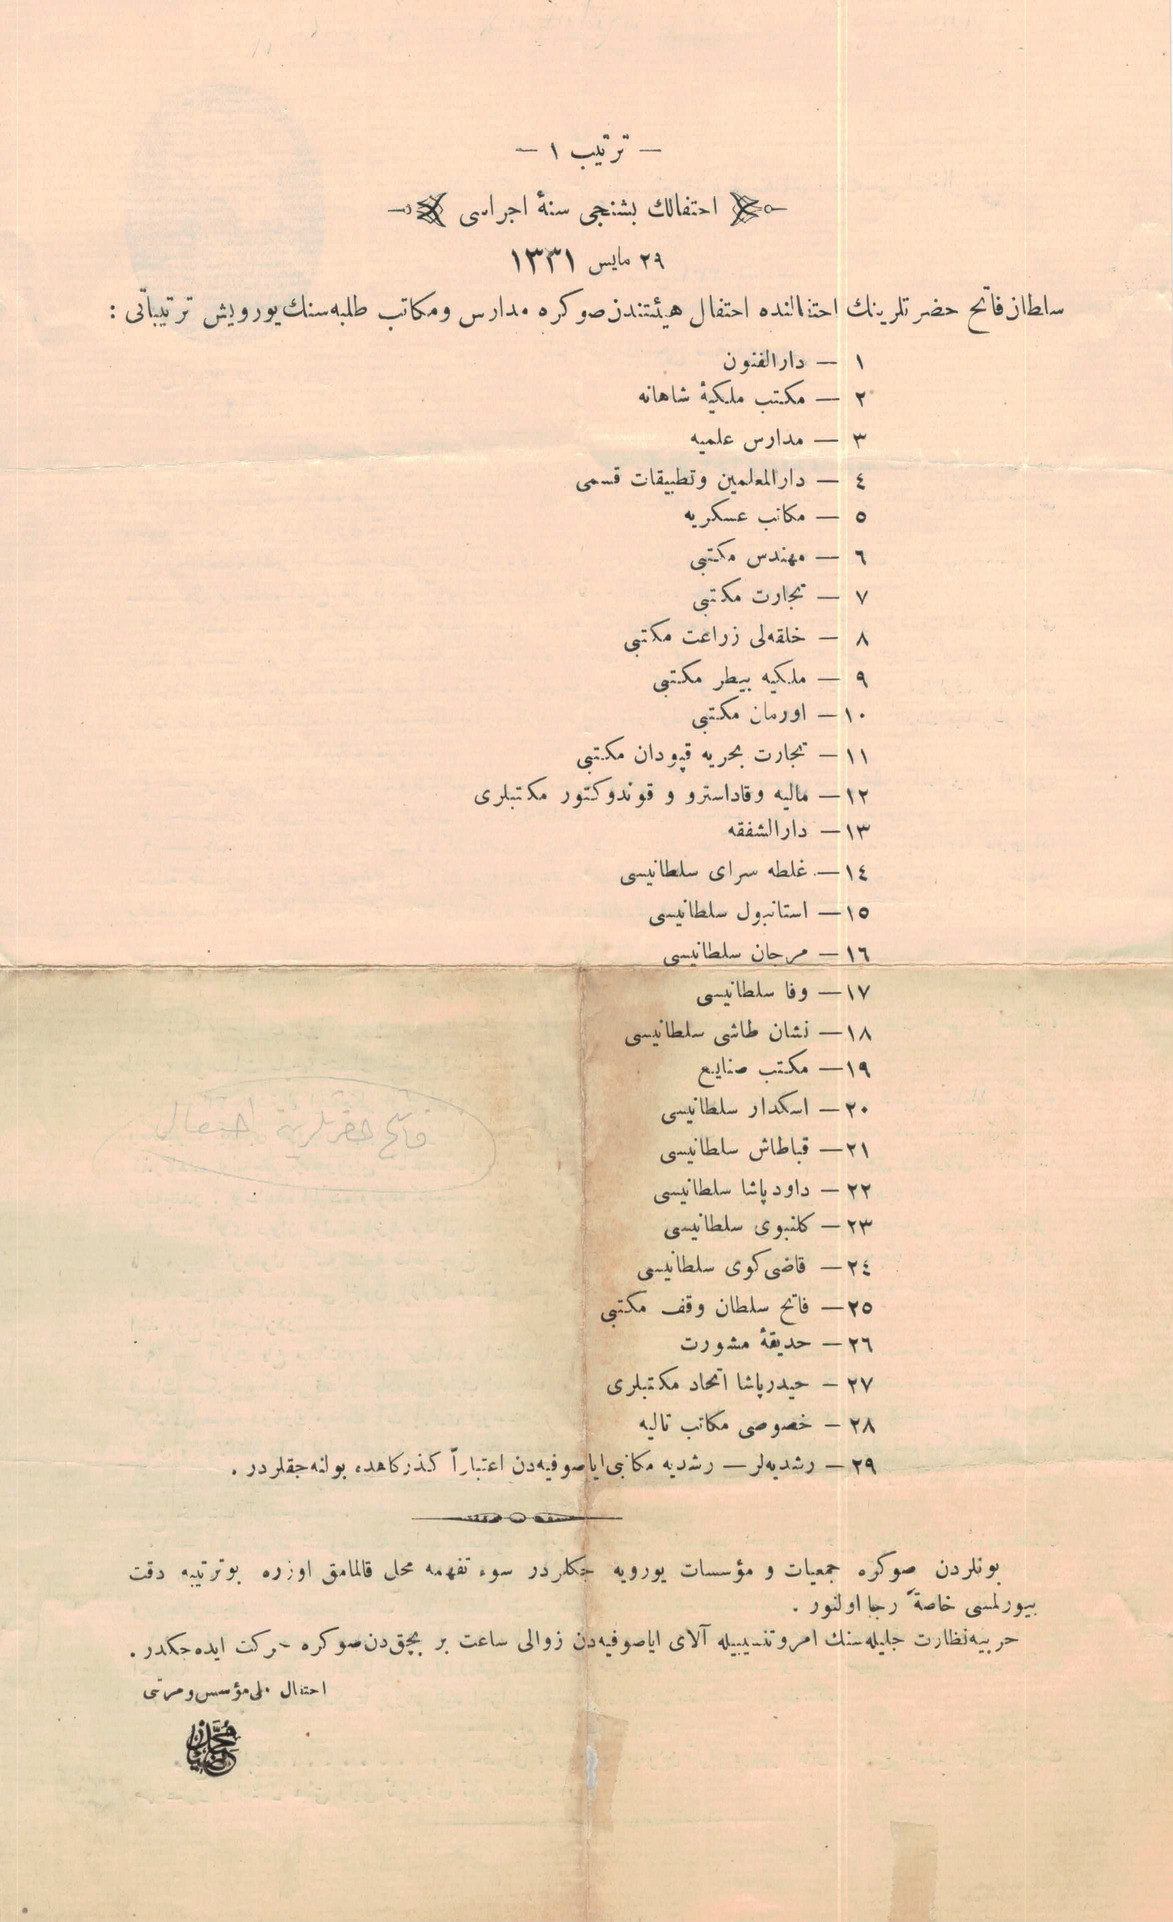 — ترتيب ١ —
احتفالك بشنجى سنۀ اجراسى
٢٩ مايس ١٣٣١
سلطان فاتح حضرتلرينك احتفالنده احتفال هيئتندن صوكره مدارس ومكاتب طلبه‌سنك يورويش ترتيباتى :
١ — دارالفنون
٢ — مكتب ملكيۀ شاهانه
٣ — مدارس علميه
٤ — دارالمعلمين وتطبيقات قسمى
٥ — مكاتب عسكريه
٦ — مهندس مكتبى
٧ — تجارت مكتبى
٨ — خلقه‌لى زراعت مكتبى
٩ — ملكيه بيطر مكتبى
١٠ — اورمان مكتبى
١١ — تجارت بحريه قپودان مكتبى
١٢ — ماليه وقاداسترو و قوندوكتور مكتبلرى
١٣ — دارالشفقه
١٤ — غلطه سراى سلطانيسى
١٥ — استانبول سلطانيسى
١٦ — مرجان سلطانيسى
١٧ — وفا سلطانيسى
١٨ — نشان طاشى سلطانيسى
١٩ — مكتب صنايع
٢٠ — اسكدار سلطانيسى
٢١ — قباطاش سلطانيسى
٢٢ — داود پاشا سلطانيسى
٢٣ — كلنبوى سلطانيسى
٢٤ — قاضى‌كوى سلطانيسى
٢٥ — فاتح سلطان وقف مكتبى
٢٦ — حديقۀ مشورت
٢٧ — حيدرپاشا اتحاد مكتبلرى
٢٨ — خصوصى مكاتب تاليه
٢٩ — رشديه‌لر — رشديه مكاتبى اياصوفيه‌دن اعتباراً كذركاهده بولنه‌جقلردر .
بونلردن صوكره جمعيات و مؤسسات يورويه جكلردر سوء تفهمه محل قالمامق اوزره بوترتيبه دقت
بيورلمسى خاصةً رجا اولنور .
حربيه‌نظارت جليله‌سنك امروتنسيبيله آلاى اياصوفيه‌دن زوالى ساعت بر بچق‌دن‌صوكره حركت ايده‌جكدر .
احتفال ملى مؤسس ومرتبى
فاتح حضرتلرينه احتفال